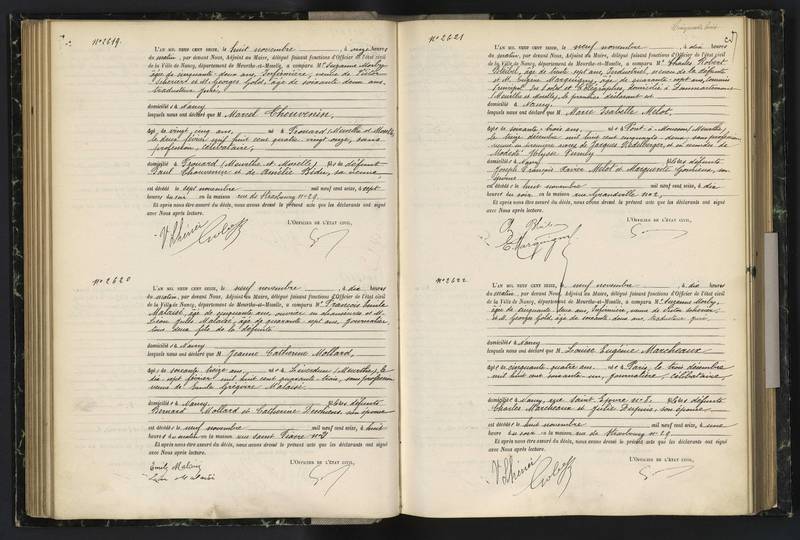 N° 2619.
L'AN MIL NEUF CENT SEIZE, le huit novembre, à onze heures
du matin, par devant Nous, Adjoint au Maire, délégué faisant fonctions d'Officier de l'état civil
de la Ville de Nancy, département de Meurthe-et-Moselle, a comparu Me Suzanne Morby
âgée de cinquante deux ans, Infirmière, veuve de Victor
et M. Georges Golé, âgé de soixante deux ans,
domicilié s à Nancy
lesquels nous ont déclaré que M Marcel Chouvenin,
âgé de vingt cinq ans, né à Frouard (Meurthe et Moselle)
le deux février mil huit cent quatre vingt onze, sans
profession, célibataire,
domicilié à Frouard (Meurthe et Moselle), fils de défunt
Paul Chouvenin et de Amélie Bédu, sa veuve
est décédé le sept novembre mil neuf cent seize, à sept
heures du soir en la maison rue de Strasbourg n° 29.
Et après nous être assuré du décès, nous avons dressé le présent acte que les déclarants ont signé
avec Nous après lecture.
L'OFFICIER DE L'ÉTAT CIVIL,
N° 2620
L'AN MIL NEUF CENT SEIZE, le neuf novembre, à dix heures
du matin, par devant Nous, Adjoint au Maire, délégué faisant fonctions d'Officier de l'état civil
de la Ville de Nancy, département de Meurthe-et-Moselle, a comparu M. François Emile
Malaisé, âgé de cinquante ans, ouvrier en chaussures et M.
Léon Jules Malaisé, âgé de quarante sept ans, journalier
tous deux fils de la défunte
domicilié s à Nancy
lesquels nous ont déclaré que M Jeanne Catherine Mollard,
âgée de soixante treize ans, née à Liverdun (Meurthe), le
dix sept février mil huit cent quarante trois, sans profession
veuve de Emile Grégoire Malaisé
domiciliée à Nancy, fille des défunts
Bernard Mollard et Catherine Deschiens son épouse
est décédée le neuf novembre mil neuf cent seize, à huit
heures du matin en la maison rue Saint Pierre n°
Et après nous être assuré du décès, nous avons dressé le présent acte que les déclarants ont signé
avec Nous après lecture.
L'OFFICIER DE L'ÉTAT CIVIL,
N° 2621
L'AN MIL NEUF CENT SEIZE, le neuf novembre, à dix heures
du matin, par devant Nous, Adjoint au Maire, délégué faisant fonctions d'Officier de l'état civil
de la Ville de Nancy, département de Meurthe-et-Moselle, a comparu M. Charles Robert
âgé de trente sept ans, Industriel, neveu de la défunte
et M. Eugène Marquigny, âgé de quarante sept ans, commis
principal des Postes et Télégraphes, domicilié à Dommartemont
(Meurthe et Moselle), le premier déclarant est
domicilié à Nancy
lesquels nous ont déclaré que M Marie Isabelle Melot,
âgée de soixante trois ans, née à Pont à Mousson (Meurthe),
le treize décembre mil huit cent cinquante deux, sans profession
veuve en premières noces de Jacques et en secondes de
Modeste Ulysse
domiciliée à Nancy, fille des défunts
Joseph François Xavier Melot et Marguerite son
épouse
est décédée le huit novembre mil neuf cent seize, à dix
heures du soir en la maison rue Grandville n° 2,
Et après nous être assuré du décès, nous avons dressé le présent acte que les déclarants ont signé
avec Nous après lecture.
L'OFFICIER DE L'ÉTAT CIVIL,
N° 2622
L'AN MIL NEUF CENT SEIZE, le neuf novembre, à dix heures
du matin, par devant Nous, Adjoint au Maire, délégué faisant fonctions d'Officier de l'état civil
de la Ville de Nancy, département de Meurthe-et-Moselle, a comparu Me Suzanne Morby,
âgée de cinquante deux ans, Infirmière, veuve de Victor
et M. Georges Golé, âgé de soixante deux ans,
domicilié s à Nancy
lesquels nous ont déclaré que M Louise Eugénie Marcheaux
âgée de cinquante quatre ans, née à Paris, le trois décembre
mil huit cent soixante un, journalière, célibataire,
domiciliée à Nancy, rue Saint Epvre n° 8. fille des défunts
Charles Marcheaux et Julie son épouse
est décédée le huit novembre mil neuf cent seize, à une
heure du soir en la maison rue de Strasbourg n° 29
Et après nous être assuré du décès, nous avons dressé le présent acte que les déclarants ont signé
avec Nous après lecture.
L'OFFICIER DE L'ÉTAT CIVIL,